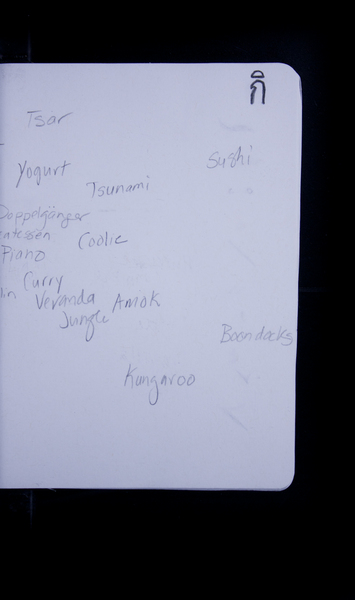 ກິ
Tsar
Sushi
Yogurt
Tsunami
Doppelgänger
Coolie
Piano
Curry
Veranda Amok
Jungle
Boondocks
Kangaroo